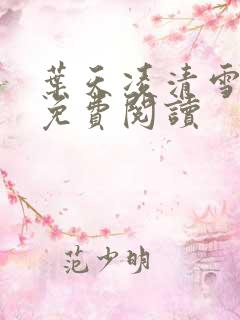 葉天凌清雪
免費閱讀
范少明